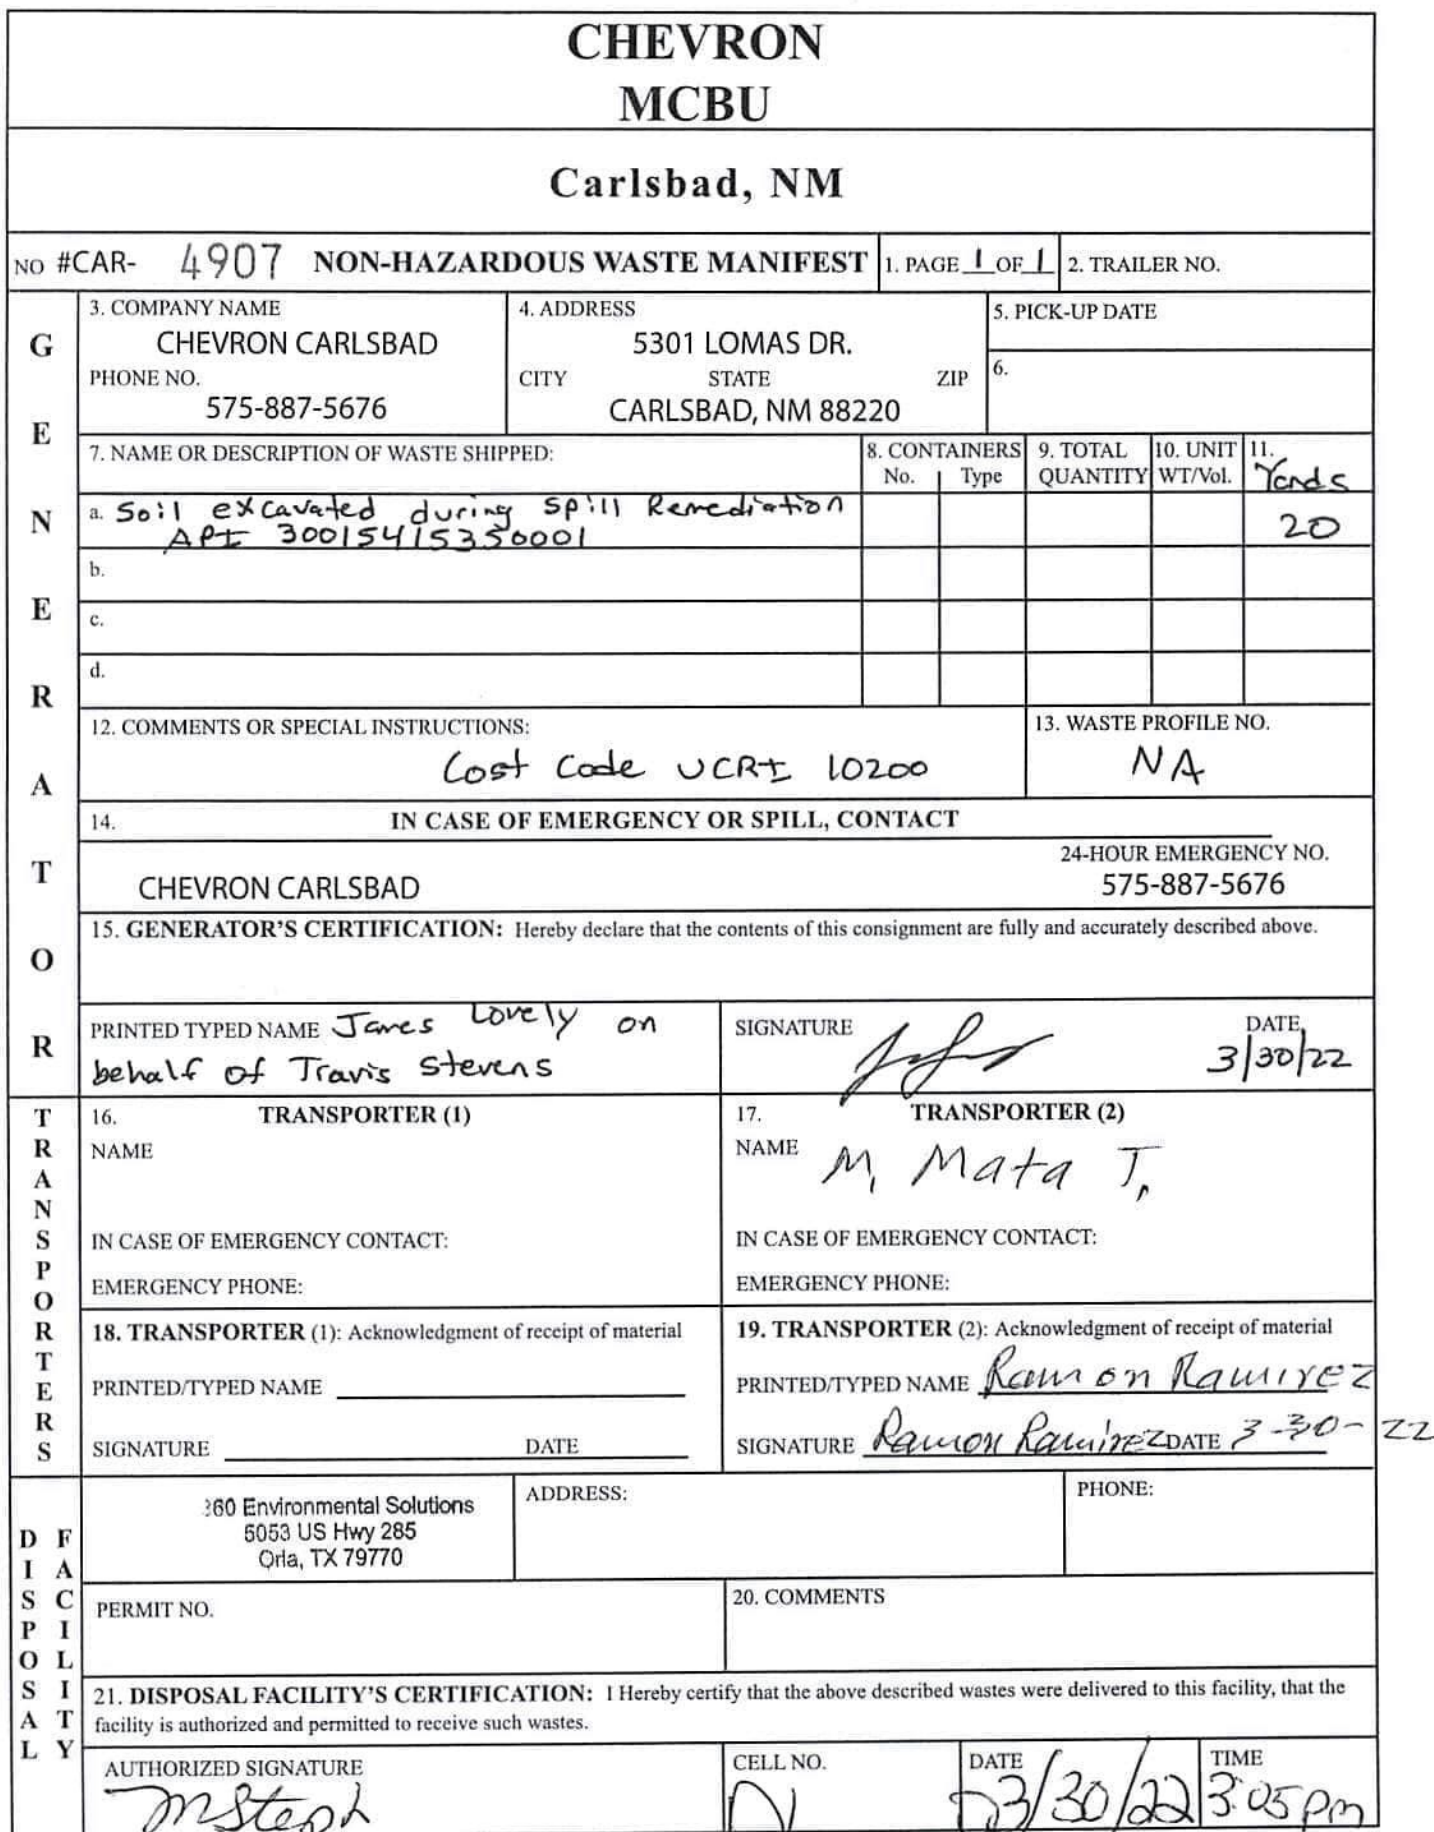 CHEVRON
MCBU
Carlsbad, NM
NO #CAR- 4907 NON-HAZARDOUS WASTE MANIFEST 1. PAGE 1 OF 1 2. TRAILER NO.
GENERATOR
3. COMPANY NAME
CHEVRON CARLSBAD
PHONE NO.
575-887-5676
4. ADDRESS
5301 LOMAS DR.
CITY STATE ZIP
CARLSBAD, NM 88220
5. PICK-UP DATE
6.
7. NAME OR DESCRIPTION OF WASTE SHIPPED:
8. CONTAINERS
No. Type
9. TOTAL
QUANTITY
10. UNIT
WT/Vol.
11.
Yards
a. Soil excavated during spill Remediation
API 30015415350001
20
b.
c.
d.
12. COMMENTS OR SPECIAL INSTRUCTIONS:
Cost Code UCRI 10200
13. WASTE PROFILE NO.
NA
14. IN CASE OF EMERGENCY OR SPILL, CONTACT
24-HOUR EMERGENCY NO.
CHEVRON CARLSBAD 575-887-5676
15. GENERATOR'S CERTIFICATION: Hereby declare that the contents of this consignment are fully and accurately described above.
PRINTED TYPED NAME James Lovely on
behalf of Travis Stevens
SIGNATURE
DATE
3/30/22
TRANSPORTERS
16. TRANSPORTER (1)
NAME
IN CASE OF EMERGENCY CONTACT:
EMERGENCY PHONE:
17. TRANSPORTER (2)
NAME M. Mata T.
IN CASE OF EMERGENCY CONTACT:
EMERGENCY PHONE:
18. TRANSPORTER (1): Acknowledgment of receipt of material
PRINTED/TYPED NAME
SIGNATURE DATE
19. TRANSPORTER (2): Acknowledgment of receipt of material
PRINTED/TYPED NAME Ramon Ramirez
SIGNATURE Ramon Ramirez DATE 3-30-22
DISPOSAL
FACILITY
360 Environmental Solutions
5053 US Hwy 285
Orla, TX 79770
ADDRESS:
PHONE:
PERMIT NO.
20. COMMENTS
21. DISPOSAL FACILITY'S CERTIFICATION: I Hereby certify that the above described wastes were delivered to this facility, that the
facility is authorized and permitted to receive such wastes.
AUTHORIZED SIGNATURE
CELL NO.
DATE
3/30/22
TIME
3:05 pm